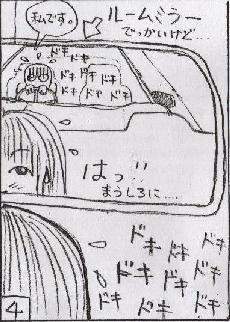 私です。
ルームミラー
でっかいけど…
ドキ
ドキ
ドキ ドキ ドキ
ドキ ドキ ドキ
はっ!!
まうしろに…
ドキ ドキ ドキ
ドキ ドキ ドキ
ドキ ドキ ドキ
4